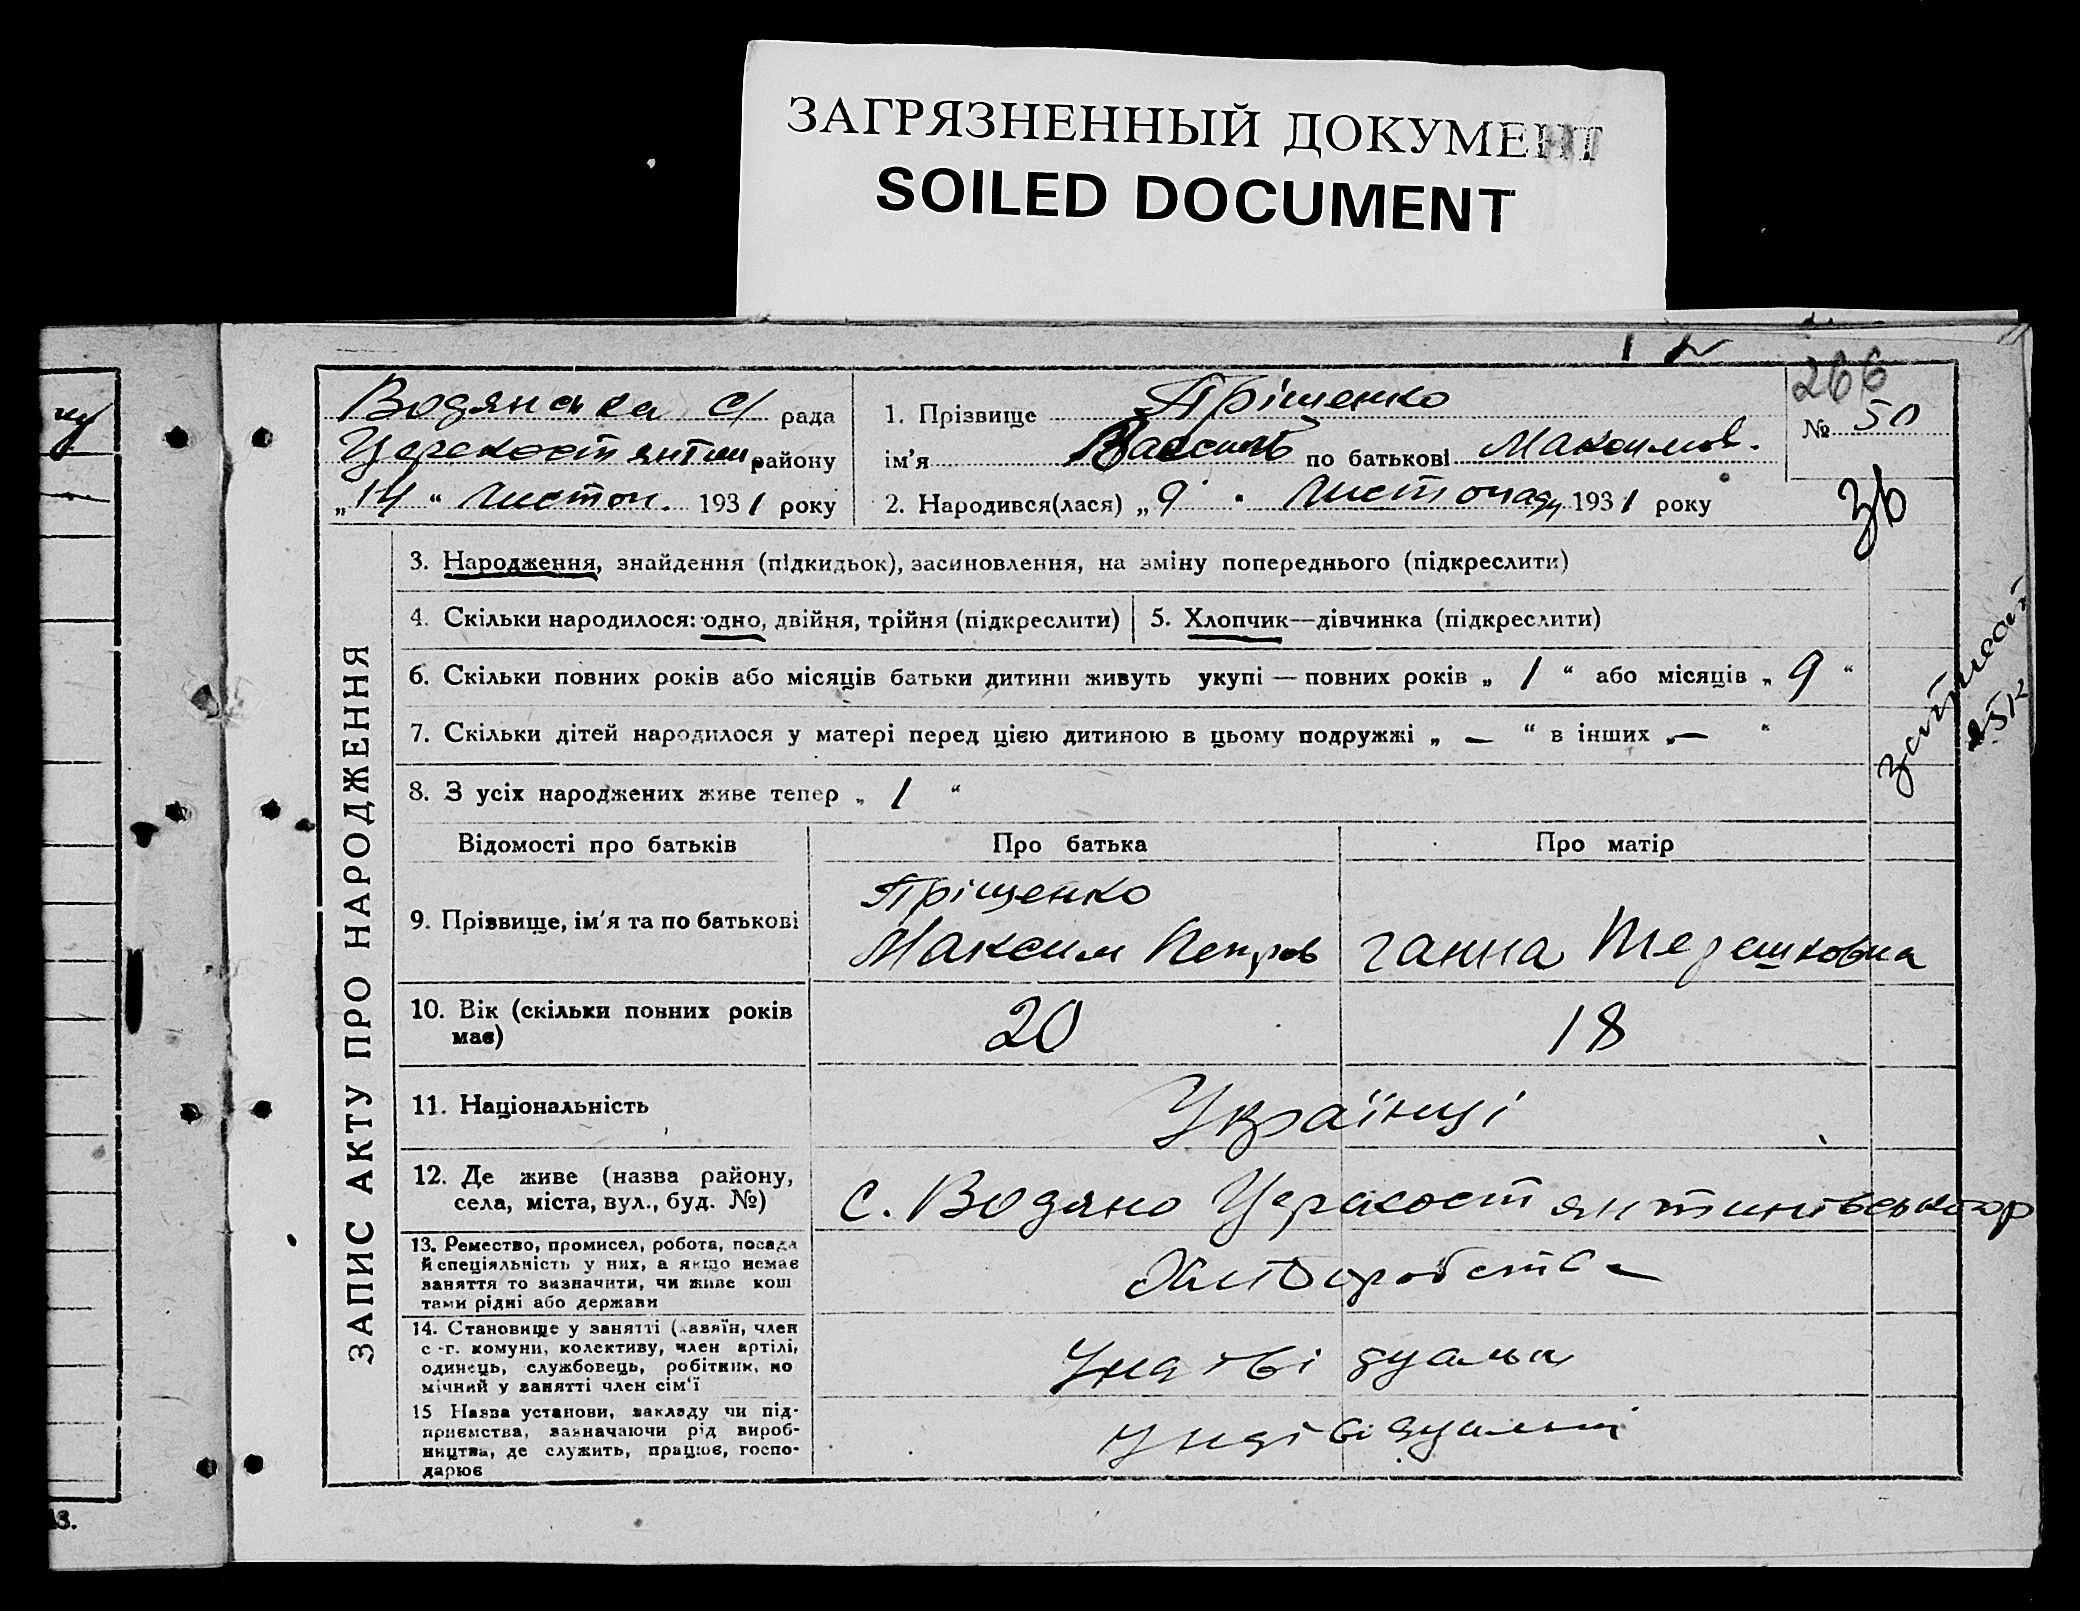 ЗАГРЯЗНЕННЫЙ ДОКУМЕНТ
SOILED DOCUMENT
266
Водянська с/ рада
1. Прізвище Пріщенко
№ 50
район
ім'я Василь по батькові Максимов.
„14“ Листоп. 1931 року
2. Народився(лася) „9“ Листопаду 1931 року
ЗАПИС АКТУ ПРО НАРОДЖЕННЯ
3. Народження, знайдення (підкидьок), засиновлення, на зміну попереднього (підкреслити)
4. Скільки народилося: одно, двійня, трійня (підкреслити)
5. Хлопчик—дівчинка (підкреслити)
6. Скільки повних років або місяців батьки дитини живуть укупі — повних років „ 1 “ або місяців „ 9 “
7. Скільки дітей народилося у матері перед цією дитиною в цьому подружжі „ — “ в інших „ — “
8. З усіх народжених живе тепер „ 1 “
Відомості про батьків
Про батька
Про матір
9. Прізвище, ім'я та по батькові
Пріщенко
Максим Петров
Ганна Терешковна
10. Вік (скільки повних років
має)
20
18
11. Національність
Українці
12. Де живе (назва району,
села, міста, вул., буд. №)
с. Водяно Церакостянтинівського р
13. Ремество, промисел, робота, посада
й спеціяльність у них, а якщо немає
заняття то зазначити, чи живе кош
тами рідні або держави
Хліборобства
14. Становище у занятті (хазяїн, член
с.-г. комуни, колективу, член артілі,
одинець, службовець, робітник, по
мічний у занятті член сім'ї
15 Назва установи, закладу чи під-
приємства, зазначаючи рід вироб-
ництва, де служить, працює, госпо-
дарює
13.